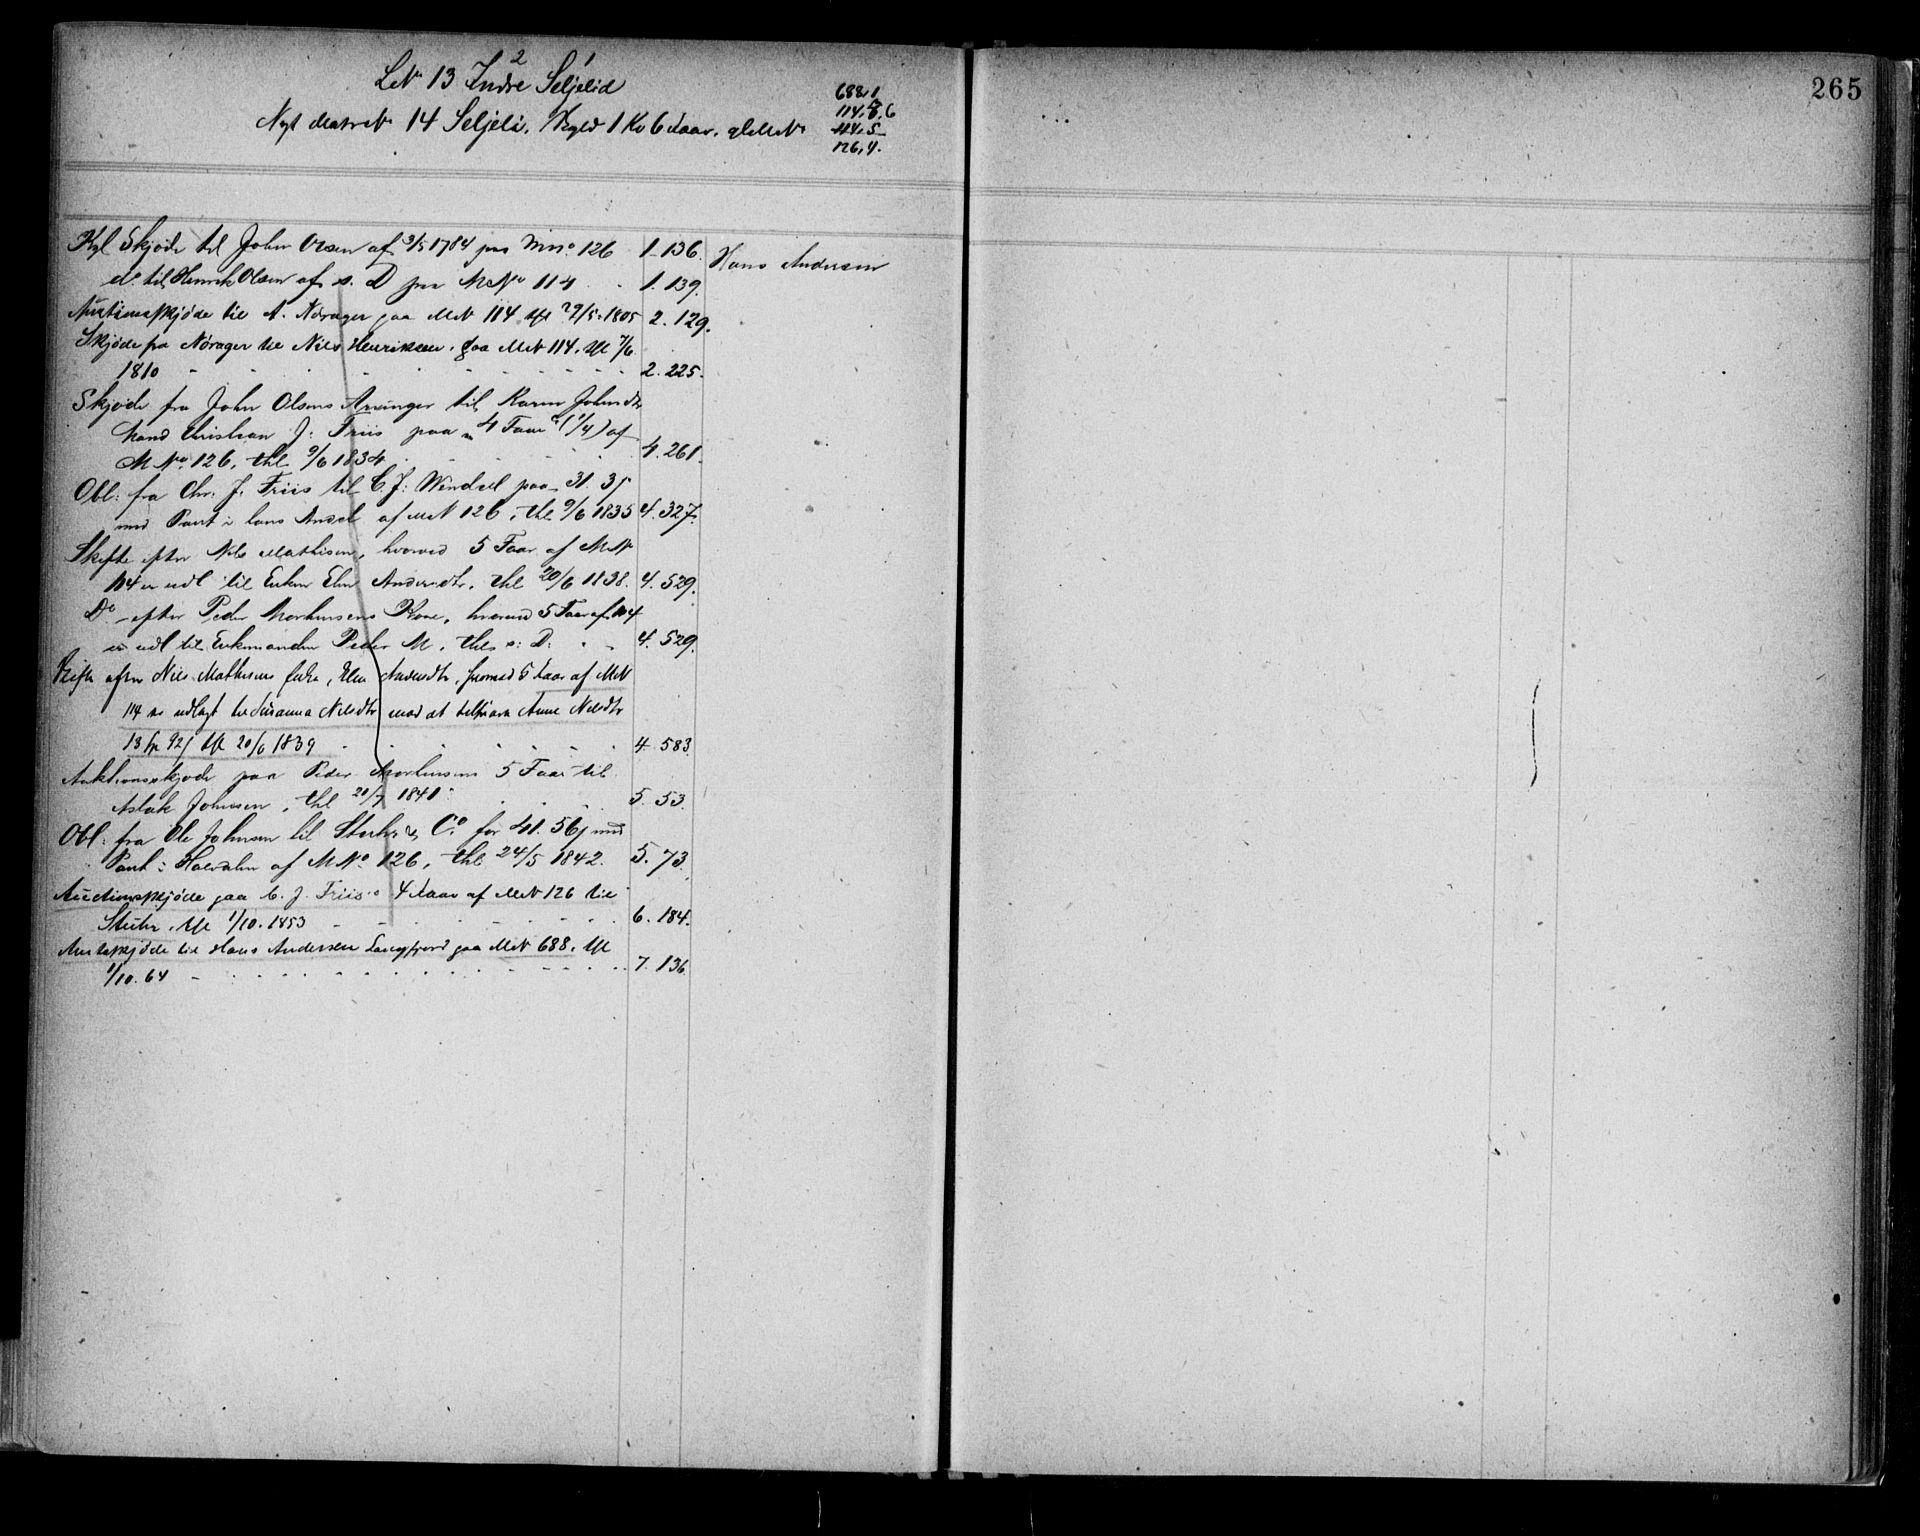 265
2 1
LNo 13 Indre Seljelid
Nyt MatrNo 14 Seljeli. Skyld 1 Ko 6 Laar. glMNo
688,1
114,5.6
114,5
126,4.
Kgl Skjøde til John Olsen af 3/5 1784 paa MNo. 126 1. 136.
do. til Henrik Olsen af s. D paa MNo 114 1. 139.
Auktionsskjøde til A. Norager paa MN 114 thl 29/5. 1805 2. 129.
Skjøde fra Norager til Niels Henriksen. paa MN 114. thl 7/6
1810 2. 225.
Skjøde fra John Olsens Arvinger til Karen Johnsdtr
Mand Christian J: Friis paa 4 Faar (1/4) af
MNo. 126, thl 9/6 1834 4. 261.
Obl: fra Chr. J. Friis til C. J: Wendsel paa 31. 35
med Pant i hans Andel af MN 126, thl 9/6 1835 4. 327.
Skifte efter Nils Mathisen, hvorved 5 Faar af MN
114 er udl til Enken Elen Andersdtr, thl 20/6 1838. 4. 529.
Do efter Peder Mortensens Kone, hvorved 5 Faar af 114
er udl til Enkemanden Peder M, thl s: D: 4. 529.
Skifte efter Niels Mathisens Enke, Elen Andersdtr, hvorved 5 Laar af MN
114 er udlagt til Susanna Nilsdtr mod at tilsvare Anne Nilsdtr
13 Sp 92 s thl 20/6 1839 4. 583.
Auktionsskjøde paa Peder Mortensens 5 Faar til
Aslak Johnsen, thl 20/7 1841 5. 53.
Obl: fra Ole Johnsen til Stuhr & Co. for 41. 56 s med
Pant i Halvdelen af MNo. 126, thl 24/5 1842. 5. 73.
Auctionsskjøde paa C. J. Friis's 4 Laar af MN 126 til
Stuhr, thl 1/10. 1853 6. 184.
Amtsskjøde til Hans Andersen Langfjord paa MN 688. thl
1/10. 64 7. 136.
Hans Andersen